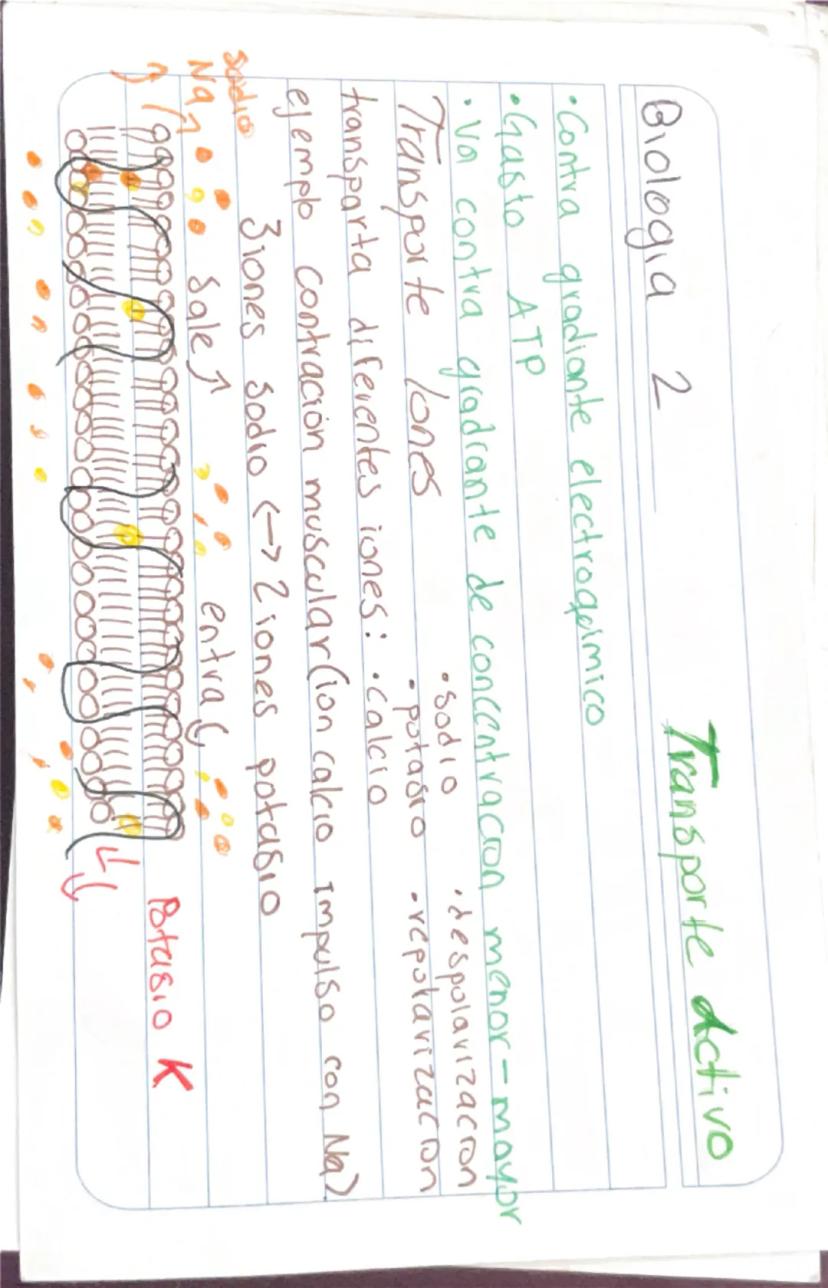 Biologia 2 Transporte activo
• Contra gradiante electroqimico
• Gasto ATP
• Va contra gradiante de concentracion menor - mayor
Transporte Iones • sodio • despolarizacion
• potasio • repolarizacion
transparta diferentes iones: • calcio
ejemplo contracion muscular (ion calcio impulso con Na)
3iones sodio <-> 2 iones potasio
sodio
Na
sale
entra
Potasio K